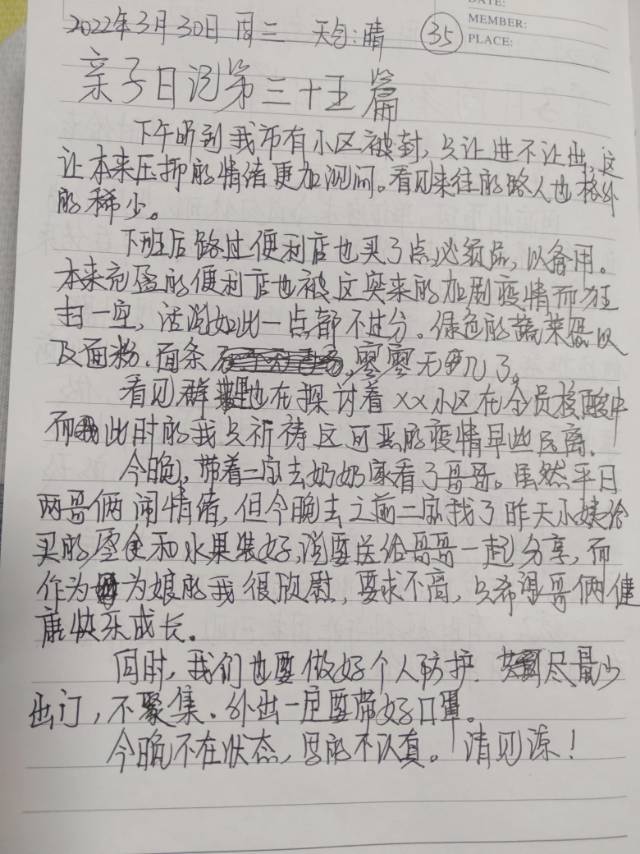 DATE:
MEMBER:
PLACE:
2022年3月30日 周三 天气:晴 35
亲子日记第三十五篇
下午听到我市有小区被封,只让进不让出,这
让本来压抑的情绪更加沉闷。看见来往的路人也格外
的稀少。
下班后路过便利店也买了点必须品,以备用。
本来充盈的便利店也被这突来的加剧疫情而狂
扫一空,活说如此一点都不过分。绿色的蔬菜以
及面粉.面条寥寥无几了。
看见群里也在探讨着xx小区在全员核酸中
而此时的我只祈祷这可恶的疫情早些远离.
今晚,带着二宝去奶奶家看了哥哥。虽然平日
两哥俩闹情绪,但今晚去之前二宝找了昨天小姨给
买的零食和水果装好,说要送给哥哥一起分享,而
作为为娘的我很欣慰,要求不高,只希望哥俩健
康快乐成长。
同时,我们也要做好个人防护.尽量少
出门,不聚集.外出一定要带好口罩。
今晚不在状态,写的不认真。请见谅!